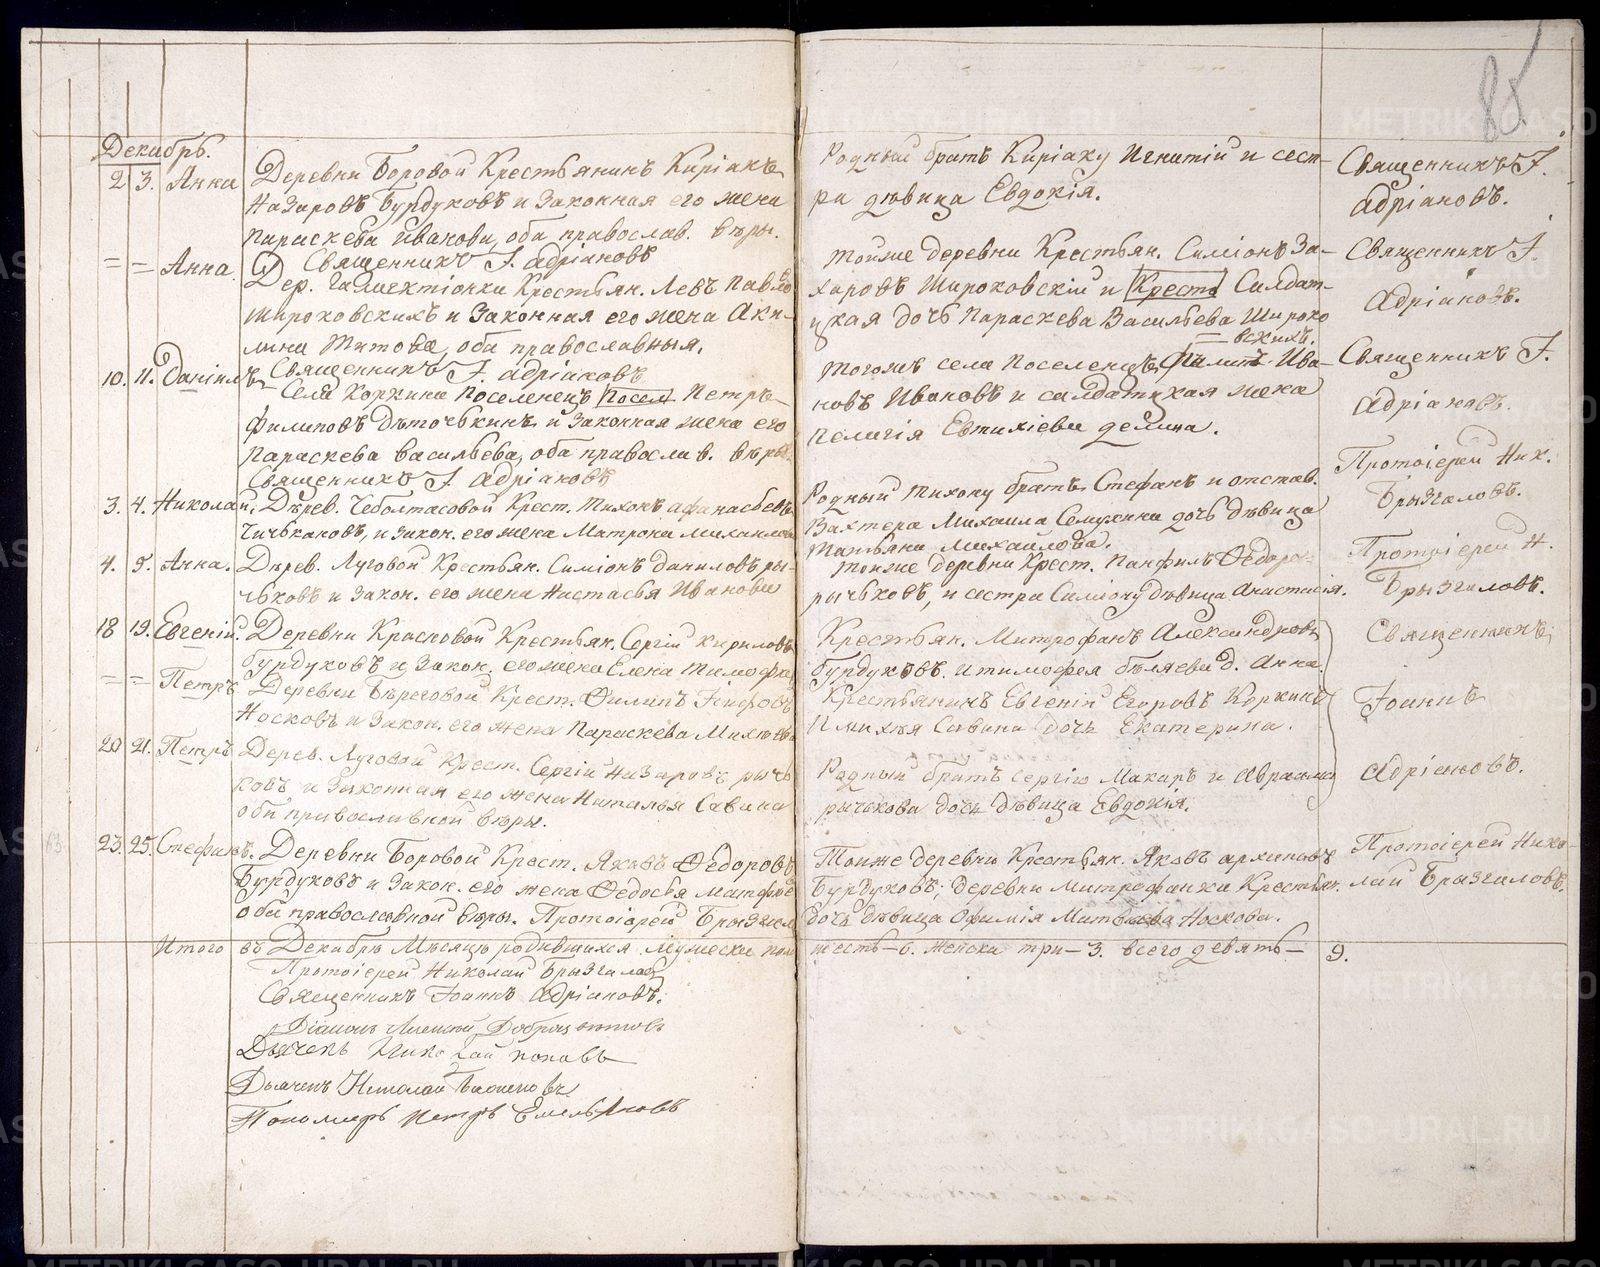 85
Декабрь.
2 3. Анна Деревни Боровой Крестьянинъ Киріакъ
Назаровъ Бурдуковъ и Законная его жена
Параскева Иванова, оба православ. вѣры.
Священникъ І. Адріановъ
= = Анна Дер. Крестьян. Левъ Павло
Широковскихъ и Законная его жена Аки-
лина Титова, оба православныя.
Священникъ І. Адріановъ
10. 11. Даніилъ Села Коркина Поселенецъ Посел. Петръ
Филиповъ Дѣточькинъ и Законная жена его
Параскева Васильева, оба православ. вѣры.
Священникъ І. Адріановъ
3. 4. Николай. Дерев. Чеболтасовой Крест. Тихонъ Афанасьевъ
Чичькановъ, и закон. его жена Матрона Михаилова
4. 5. Анна. Дерев. Луговой Крестьян. Симіонъ Даниловъ Ры-
чьковъ и Закон. его жена Настасья Иванова
18 19. Евгеній. Деревни Красновой Крестьян. Сергій Кириловъ
Бурдуковъ и Закон. его жена Елена Тимофѣе
= = Петръ Деревни Береговой Крест. Филипъ
Носковъ и Закон. его жена Параскева Михѣева
20 21. Петръ Дерев. Луговой Крест. Сергій Назаровъ Рычь
ковъ и Законная его жена Наталья Савина
оба православной вѣры.
23. 25. Стефанъ. Деревни Боровой Крест. Яковъ Ѳедоровъ
Бурдуковъ и Закон. его жена Ѳедосья Матфѣе
оба православной вѣры. Протоіерей Брызгал
Итого въ Декабрѣ Мѣсяцѣ родившихся мужеска пола
Протоіерей Николай Брызгаловъ
Священникъ Іоаннъ Адріановъ.
Діаконъ Алексѣй
Дьячекъ Николай Поповъ
Дьячекъ Николай
Пономарь Петръ Емельяновъ
Родный братъ Киріаку Игнатій и сест-
ра дѣвица Евдокія.
Священникъ І.
Адріановъ.
Тойже деревни Крестьян. Симіонъ За-
харовъ Широковскій и Крестъ Салдат-
цкая дочь Параскева Васильева Широко
=вскихъ.
Священникъ І.
Адріановъ.
Тогоже села Поселенецъ Ива-
новъ Ивановъ и салдатцкая жена
Пелагія Евтихіева
Священникъ І.
Адріановъ.
Родный Тихону братъ Стефанъ и отстав.
Вахтера Михаила дочь дѣвица
Татьяна Михайлова.
Протоіерей Ник.
Брызгаловъ.
Тойже деревни Крест. Панфилъ Ѳедоро
Рычьковъ, и сестра Симіону дѣвица Анастасія.
Протоіерей Н.
Брызгаловъ.
Крестьян. Митрофанъ Александровъ
Бурдуковъ. и Тимофея Бѣляева д. Анна.
Крестьянинъ Евгеній Егоровъ Коркинъ
и Михѣя Савина дочь Екатерина.
Родный братъ Сергію Макаръ и Авраама
Рычькова дочь дѣвица Евдокія.
Священникъ
Іоаннъ
Адріановъ.
Тойже деревни Крестьян. Яковъ Архиповъ
Бурдуковъ; деревни Митрофанки Крестьян.
дочь дѣвица Офимія Матвѣева Носкова.
Протоіерей Нико-
лай Брызгаловъ.
шесть-6. женска три-3. всего девять- 9.
METRIKI.GASO-URAL.RU